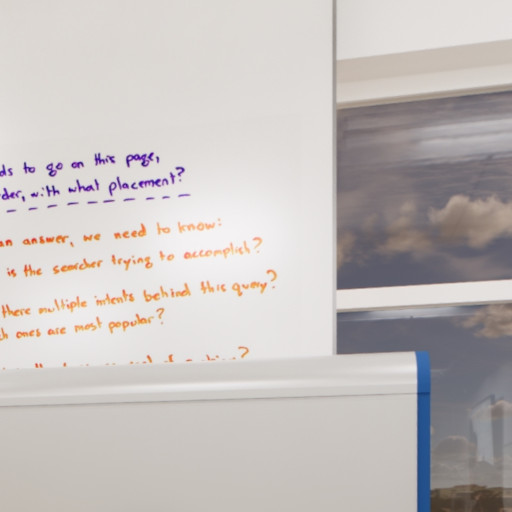 to go on this page,
with what placement?
an answer, we need to know:
is the searcher trying to accomplish?
there multiple intents behind this query?
ones are most popular?